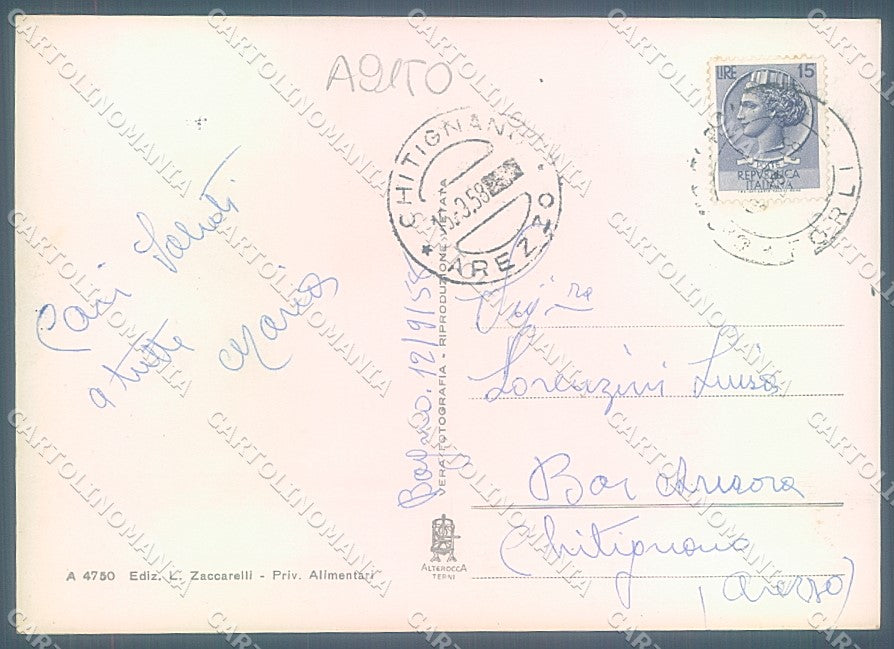 A91TO
LIRE 15
REPVBBLICA
ITALIANA
CHITIGNANO
15.9.58
* AREZZO
FORLI
Cari Saluti
a tutte
Maria
Bagno. 12/9/58
VERA FOTOGRAFIA - RIPRODUZIONE VIETATA
Sig.ra
Lorenzini Luisa
Bar Aurora
Chitignano
(Arezzo)
ALTEROCCA
TERNI
A 4750 Ediz. L. Zaccarelli - Priv. Alimentari
CARTOLINOMANIA